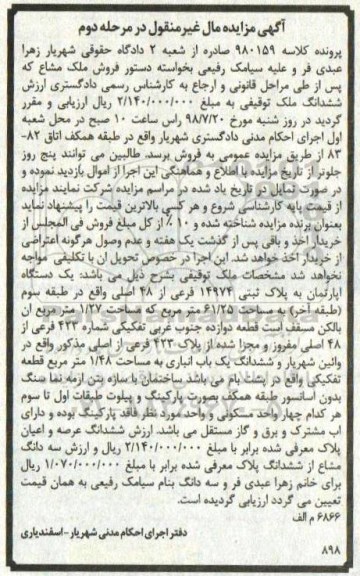 آگهی مزایده مال غیرمنقول در مرحله دوم
پرونده کلاسه ۹۸۰۱۵۹ صادره از شعبه ۲ دادگاه حقوقی شهریار زهرا
عبدی فر و علیه سیامک رفیعی بخواسته دستور فروش ملک مشاع که
پس از طی مراحل قانونی و ارجاع به کارشناس رسمی دادگستری ارزش
ششدانگ ملک توقیفی به مبلغ ۲/۱۴۰/۰۰۰/۰۰۰ ریال ارزیابی و مقرر
گردید در روز شنبه مورخ ۹۸/۷/۲۰ راس ساعت ۱۰ صبح در محل شعبه
اول اجرای احکام مدنی دادگستری شهریار واقع در طبقه همکف اتاق ۸۲-
۸۳ از طریق مزایده عمومی به فروش برسد. طالبین می توانند پنج روز
جلوتر از تاریخ مزایده با اطلاع و هماهنگی این اجرا از اموال بازدید نموده و
در صورت تمایل در تاریخ یاد شده در مراسم مزایده شرکت نمایند مزایده
از قیمت پایه کارشناسی شروع و هر کسی بالاترین قیمت را پیشنهاد نماید
بعنوان برنده مزایده شناخته شده و ۱۰٪ از کل مبلغ فروش فی المجلس از
خریدار اخذ و باقی پس از گذشت یک هفته و عدم وصول هرگونه اعتراضی
از خریدار اخذ خواهد شد. این اجرا در خصوص تحویل ان با تکلیفی مواجه
نخواهد شد مشخصات ملک توقیفی بشرح ذیل می باشد: یک دستگاه
اپارتمان به پلاک ثبتی ۱۴۹۷۴ فرعی از ۴۸ اصلی واقع در طبقه سوم
(طبقه آخر) به مساحت ۶۱/۲۵ متر مربع که مساحت ۱/۲۷ متر مربع ان
بالکن مسقف است قطعه دوازده جنوب غربی تفکیکی شماره ۴۲۳ فرعی از
۴۸ اصلی مفروز و مجزا شده از پلاک ۴۲۳ فرعی از اصلی مذکور واقع در
وائین شهریار و ششدانگ یک باب انباری به مساحت ۱/۴۸ متر مربع قطعه
تفکیکی واقع در پشت بام می باشد ساختمان با سازه بتن ارمه نما سنگ
بدون آسانسور طبقه همکف بصورت پارکینگ و پیلوت طبقات اول تا سوم
هر کدام چهار واحد مسکونی و واحد مورد نظر فاقد پارکینگ بوده و دارای
اب مشترک و برق و گاز مستقل می باشد. ارزش ششدانگ عرصه و اعیان
پلاک معرفی شده برابر با مبلغ ۲/۱۴۰/۰۰۰/۰۰۰ ریال و ارزش سه دانگ
مشاع از ششدانگ پلاک معرفی شده برابر با مبلغ ۱/۰۷۰/۰۰۰/۰۰۰ ریال
برای خانم زهرا عبدی فر و سه دانگ بنام سیامک رفیعی به همان قیمت
تعیین می گردد ارزیابی گردیده است.
۶۸۶۶ م الف
دفتر اجرای احکام مدنی شهریار - اسفندیاری
۸۹۸